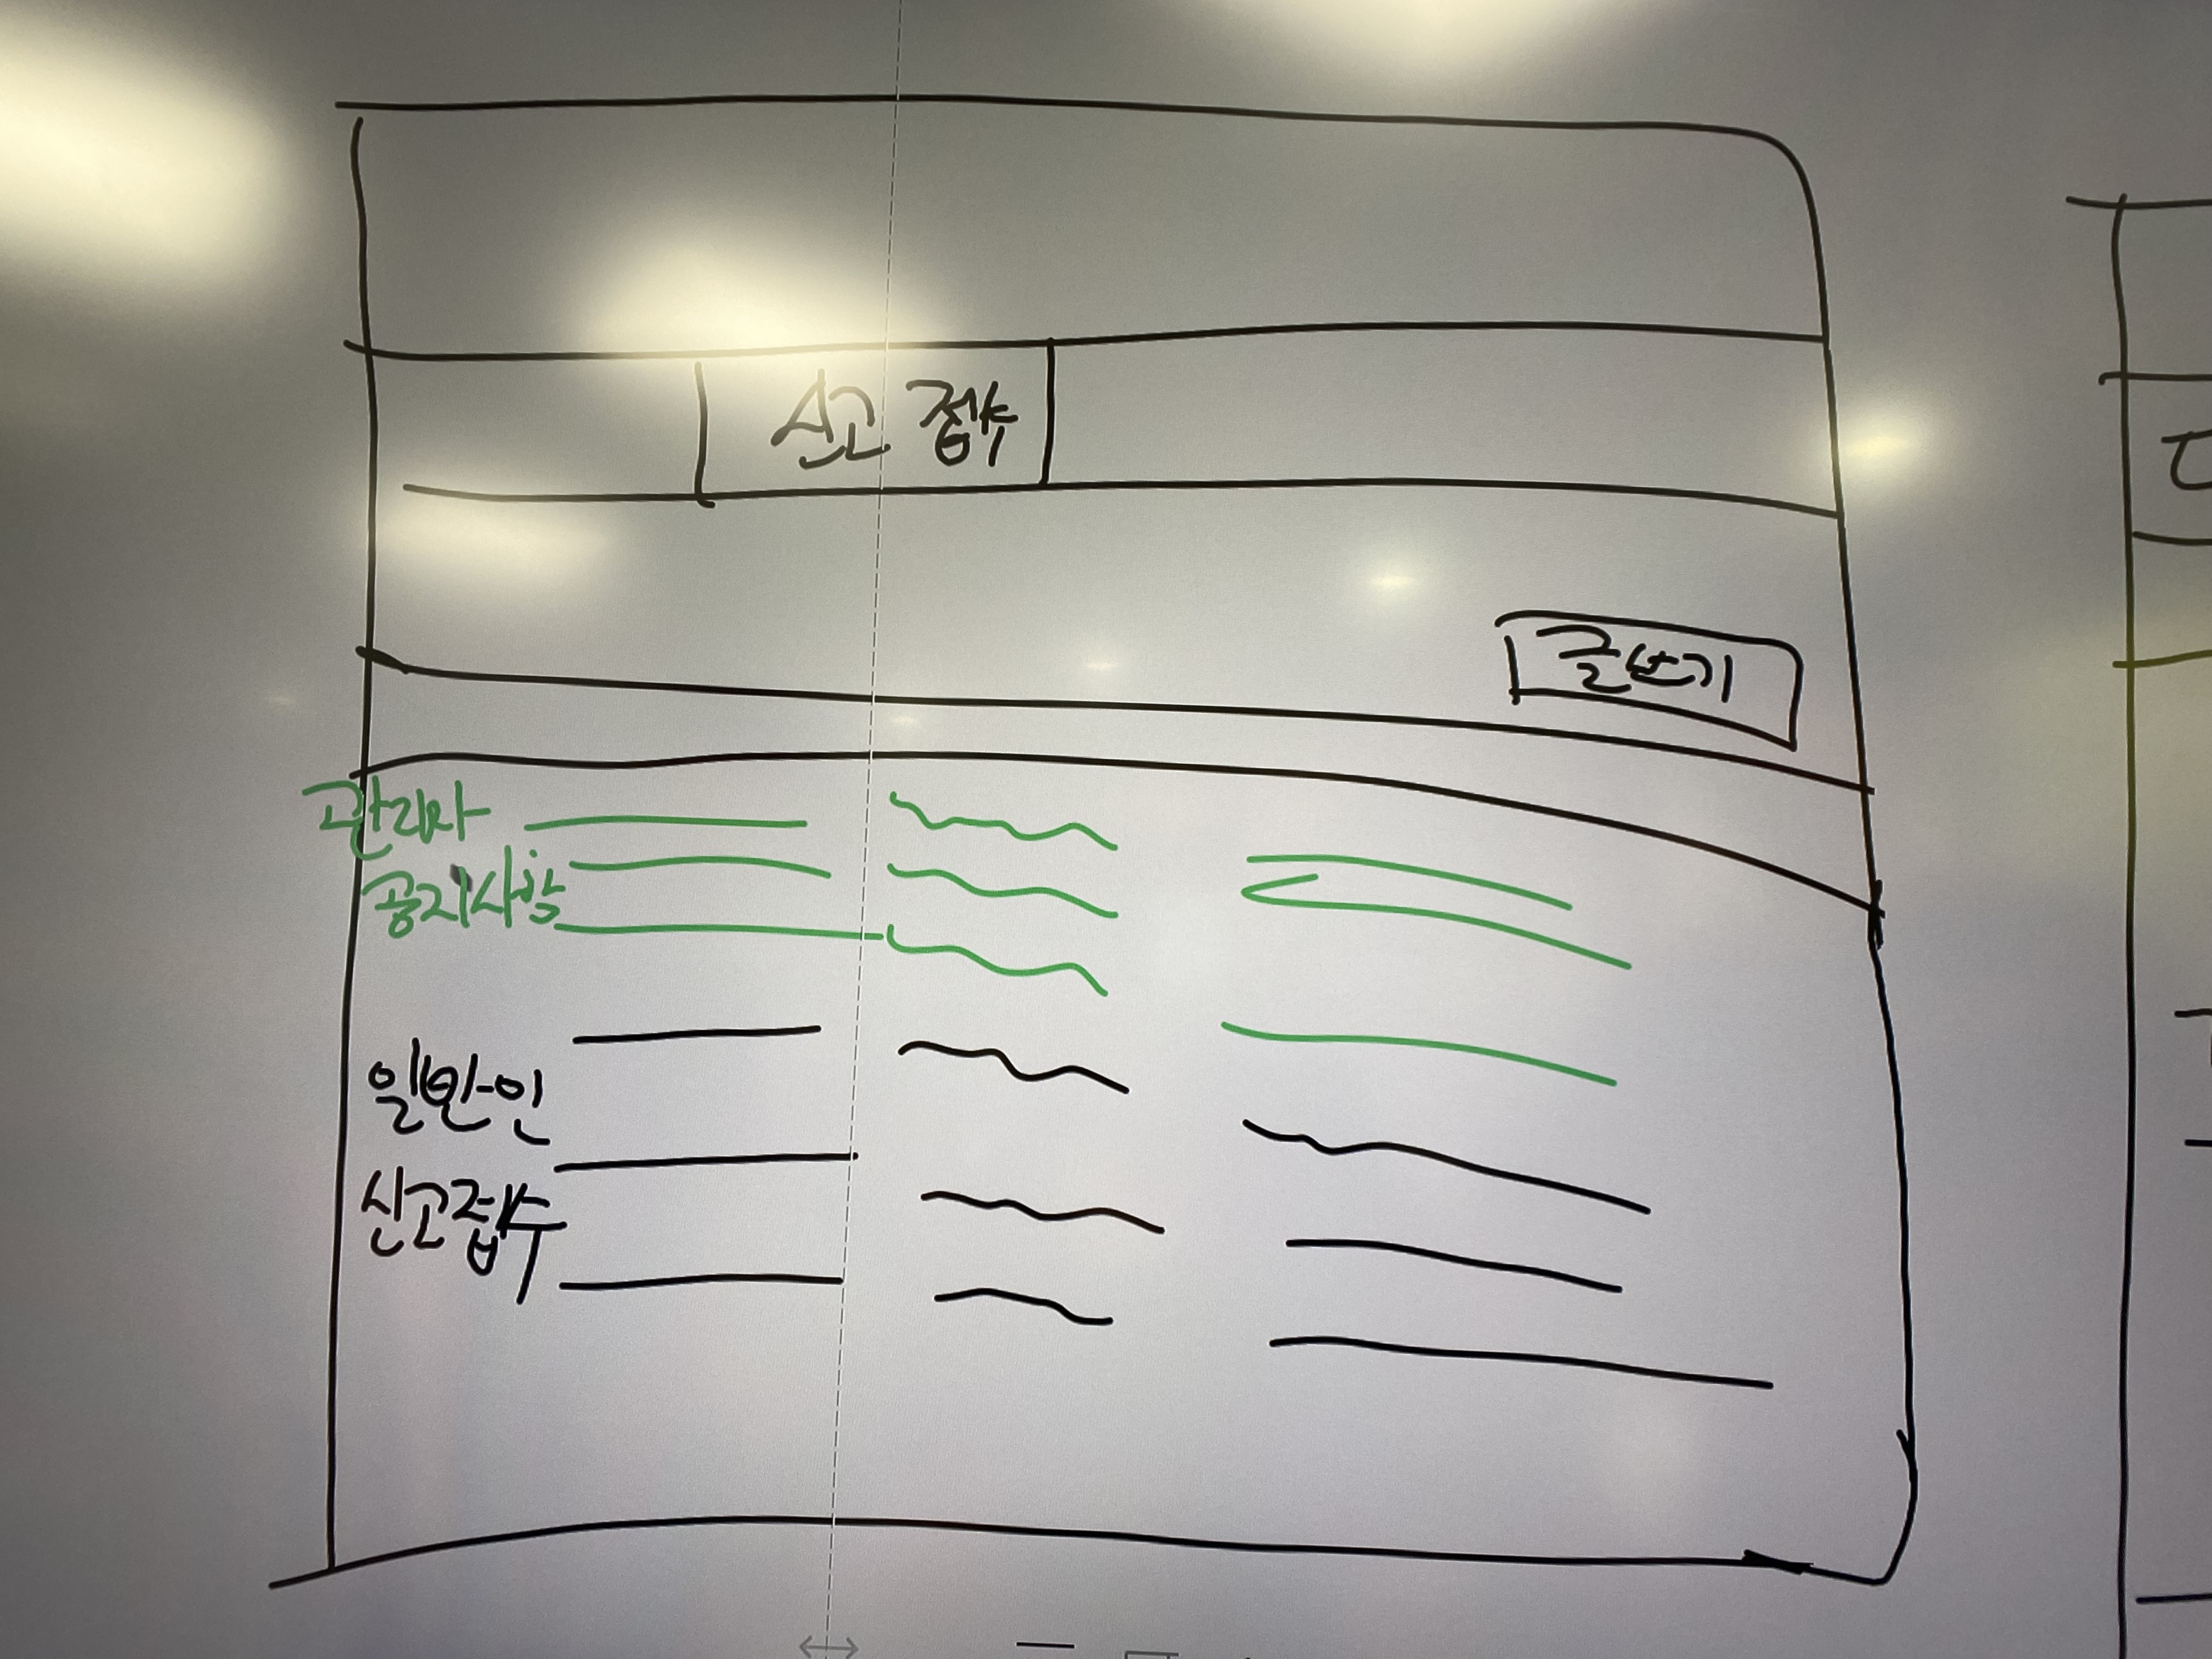 신고 접수
글쓰기
관리자
공지사항
일반인
신고접수